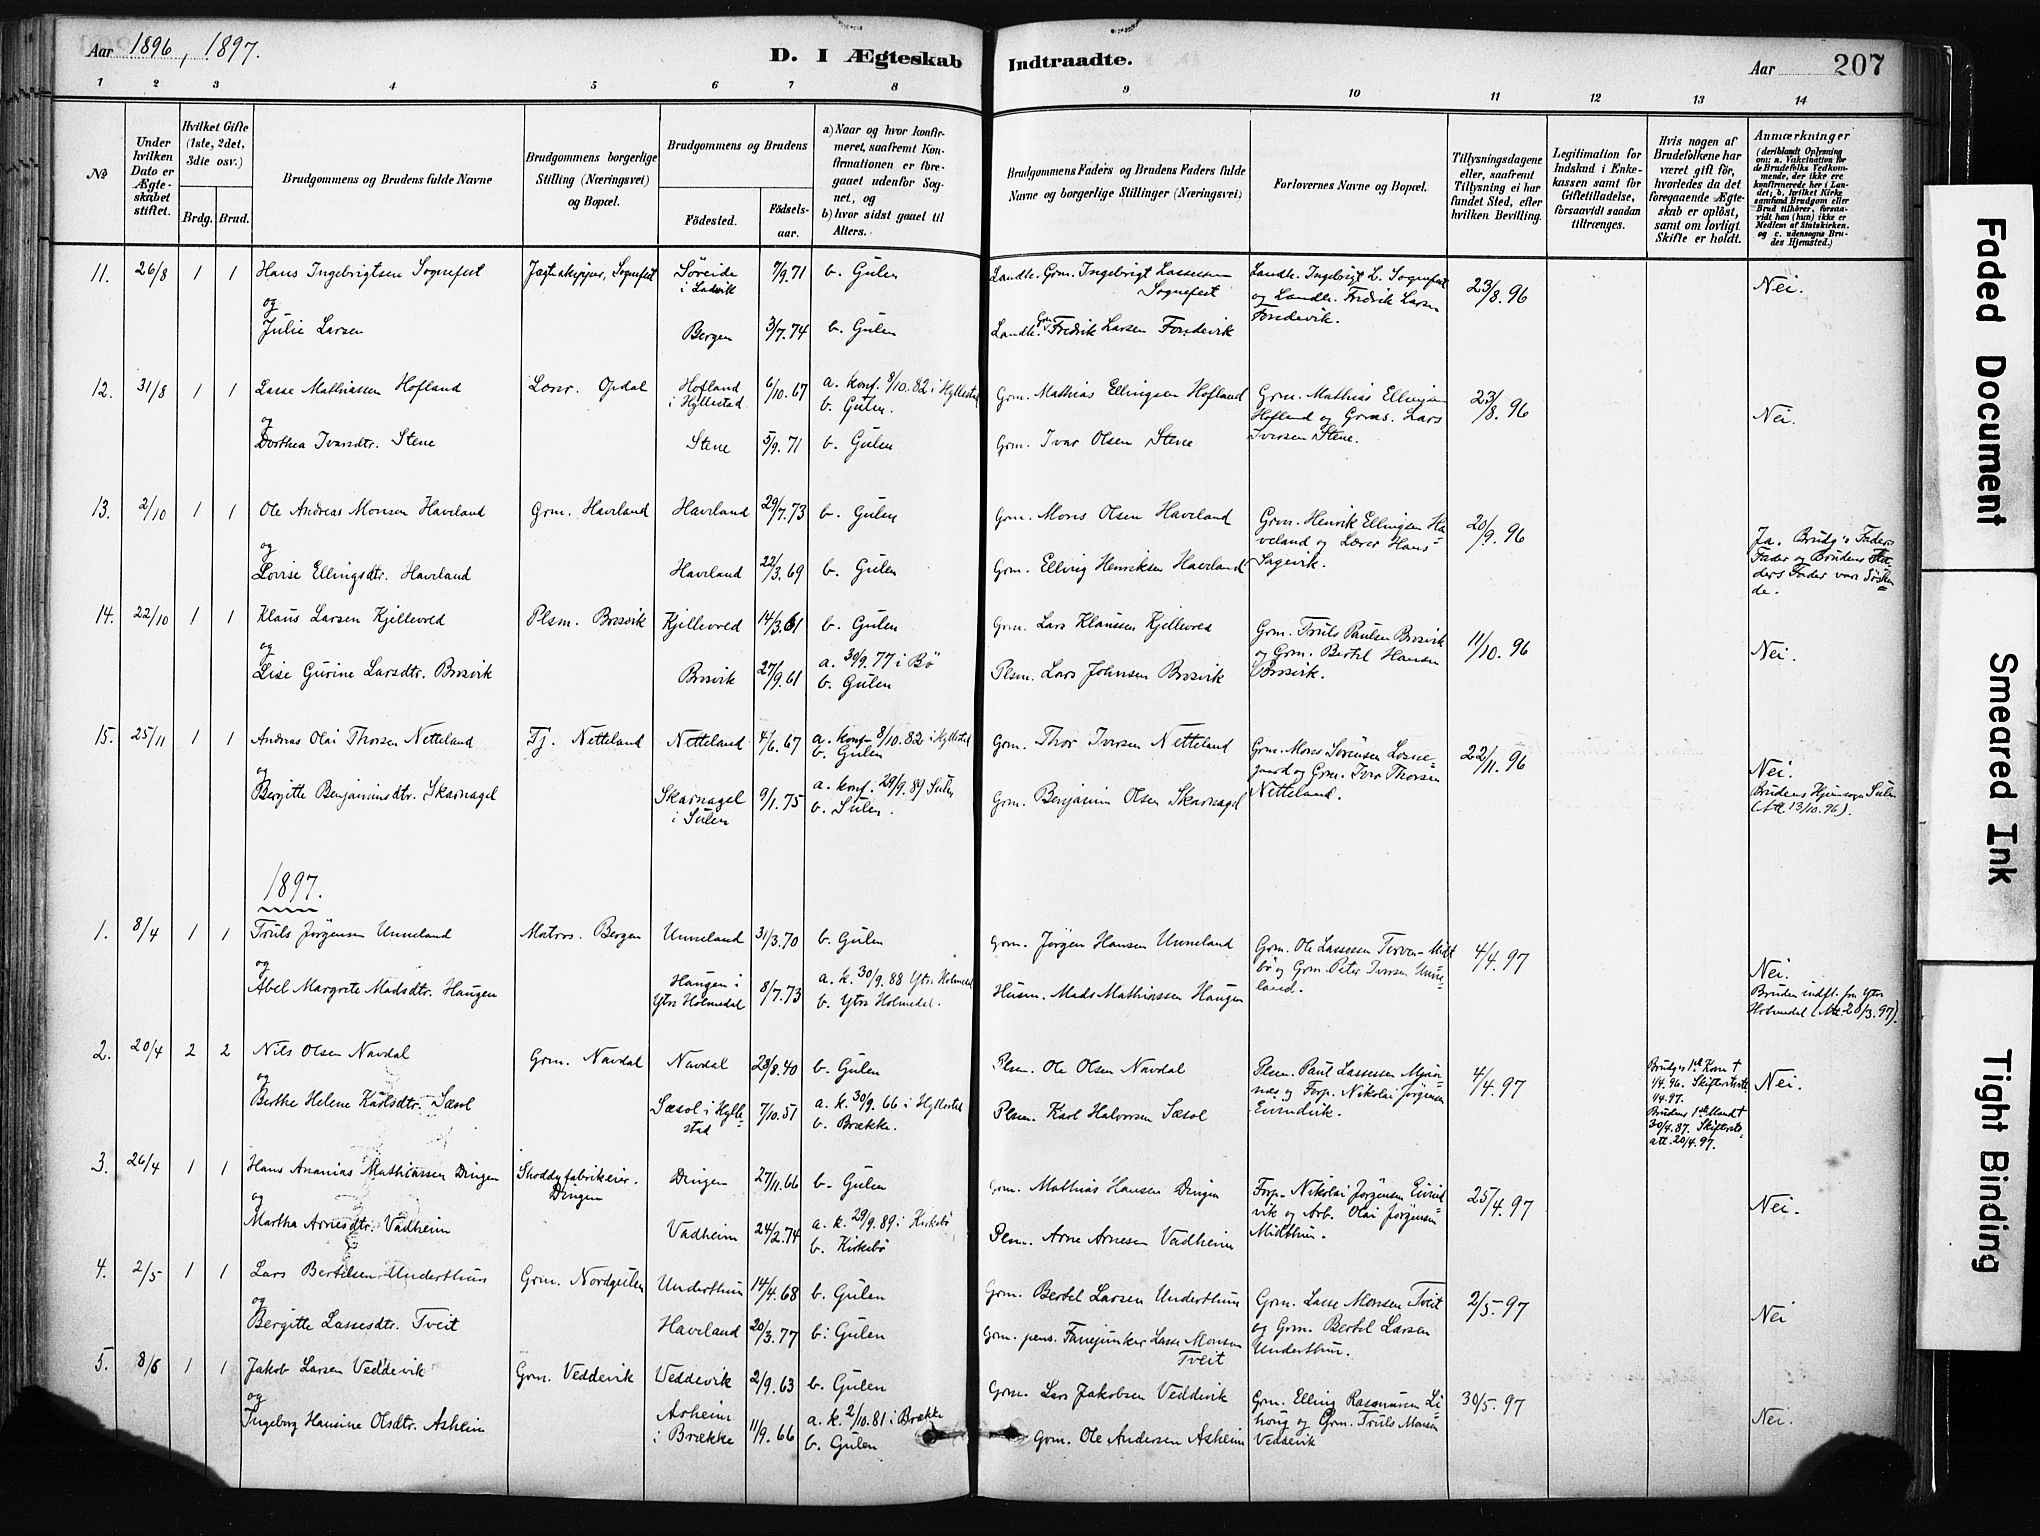 Aar 1896, 1897.
D. I Ægteskab Indtraadte.
Aar 207
1 2 3 4 5 6 7 8 9 10 11 12 13 14
No
Under hvilken Dato er Ægteskabet stiftet.
Hvilket Gifte (1ste, 2det, 3die osv.)
Brdg. Brud.
Brudgommens og Brudens fulde Navne
Brudgommens borgerlige Stilling (Næringsvei) og Bopæl.
Brudgommens og Brudens
Födested.
Födsels-aar.
a) Naar og hvor konfirmeret, saafremt Konfirmationen er foregaaet udenfor Sognet, og
b) hvor sidst gaaet til Alters.
Brudgommens Faders og Brudens Faders fulde Navne og borgerlige Stillinger (Næringsvei)
Forlovernes Navne og Bopæl.
Tillysningsdagene eller, saafremt Tillysning ei har fundet Sted, efter hvilken Bevilling.
Legitimation for Indskud i Enkekassen samt for Giftetilladelse, forsaavidt saadan tiltrænges.
Hvis nogen af Brudefolkene har været gift för, hvorledes da det foregaaende Ægteskab er oplöst, samt om lovligt Skifte er holdt.
Anmærkninger
(deriblandt Oplysning om: a. Vakcination for de Brudefolks Vedkommende, der ikke ere konfirmerede her i Landet; b. hvilket Kirkesamfund Brudgom eller Brud tilhörer, forsaavidt han (hun) ikke er Medlem af Statskirken, og c. udensogns Brudes Hjemsted.)
11. 26/8 1 1 Hans Ingebrigtsen Sognefest Jagtskipper, Sognefest Søreide i Ladvik 7/9.71 b. Gulen Landh. Grm. Ingebrigt Lassesen Sognefest Landh. Ingebrigt L. Sognefest og Landh. Fredrik Larsen Fondevik. 23/8.96 Nei.
og
Julie Larsen Bergen 3/7.74 b. Gulen Landh. Grm. Fredrik Larsen Fondevik
12. 31/8 1 1 Lasse Mathiassen Hofland Lærer. Opdal Hofland i Hyllestad 6/10.67 a. konf. 8/10.82 i Hyllestad b. Gulen. Grm. Mathias Ellingsen Hofland Grm. Mathias Ellingsen Hofland og Grms. Lars Iversen Stene. 23/8.96 Nei.
og
Dorthea Ivarsdtr. Stene Stene 5/9.71 b. Gulen Grm. Ivar Olsen Stene
13. 2/10 1 1 Ole Andreas Monsen Haveland Grm. Haveland Haveland 29/7.73 b. Gulen Grm. Mons Olsen Haveland Grm. Henrik Ellingsen Haveland og Lærer Hans Sagevik. 20/9.96 Ja. Brudg's Faders Fader og Brudens Faders Fader var Søskende.
og
Lovise Ellingsdtr. Haveland Haveland 22/3.69 b. Gulen Grm. Elling Henriksen Haveland
14. 22/10 1 1 Klaus Larsen Kjellevold Plsm. Brosvik Kjellevold 14/3.61 b. Gulen Grm. Lars Klaussen Kjellevold Grm. Truls Paulsen Brosvik og Grm. Bertel Hansen Brosvik. 11/10.96 Nei.
og
Lise Gurine Larsdtr. Brosvik Brosvik 27/9.61 a. 30/9.77 i Bø b. Gulen Plsm. Lars Johnsen Brosvik
15. 25/11 1 1 Andreas Olai Thorsen Netteland Tj. Netteland Netteland 4/6.67 a. konf. 8/10.82 i Hyllestad b. Gulen Grm. Thor Iversen Netteland Grm. Mons Sørensen Losnegaard og Grm. Iver Thorsen Netteland. 22/11.96 Nei. Brudens Hjemsogn Sulen (Att. 13/10.96).
og
Bergitte Benjaminsdtr. Skarnagel Skarnagel i Sulen 9/1.75 a. konf. 29/9.89 Sulen b. Sulen. Grm. Benjamin Olsen Skarnagel
1897.
1. 8/4 1 1 Truls Jørgensen Unneland Matros. Bergen Unneland 31/3.70 b. Gulen Grm. Jørgen Hansen Unneland Grm. Ole Lassesen Midtbø og Grm. Peter Iversen Unneland. 4/4.97 Nei. Bruden indfl. fra Ytre Holmedal (Att. 20/3.97).
og
Abel Margrete Madsdtr. Haugen Haugen i Ytre Holmedal 8/7.73 a. k. 30/9.88 Ytre Holmedal b. Ytre Holmedal. Husm. Mads Mathiassen Haugen
2. 20/4 2 2 Nils Olsen Navdal Grm. Navdal Navdal 28/8.40 b. Gulen Plsm. Ole Olsen Navdal Plsm. Paul Lassesen og Forp. Nikolai Jørgensen Eivindvik. 4/4.97 Brudg's 1ste Kone † 1/4.96. Skifteretsatt. 1/4.97. Brudens 1ste Mand † 30/4.87. Skifteretsatt. 20/4.97. Nei.
og
Berthe Helene Karlsdtr. Sæsol Sæsol i Hyllestad 7/10.51 a. k. 30/9.66 i Hyllestad b. Brække. Plsm. Karl Halvorsen Sæsol
3. 26/4 1 1 Hans Ananias Mathiassen Dingen Shoddyfabrikeier. Dingen Dingen 27/11.66 b. Gulen Grm. Mathias Hansen Dingen Forp. Nikolai Jørgensen Eivindvik og Arb. Olai Jørgensen Midthun. 25/4.97 Nei.
og
Martha Arnesdtr. Vadheim Vadheim 24/2.74 a. k. 29/9.89 i Kirkebø b. Kirkebø Plsm. Arne Arnesen Vadheim
4. 2/5 1 1 Lars Bertelsen Underthun Grm. Nordgulen Underthun 14/4.68 b. Gulen Grm. Bertel Larsen Underthun Grm. Lasse Monsen Tveit og Grm. Bertel Larsen Underthun. 2/5.97 Nei
og
Bergitte Lassesdtr. Tveit Haveland 20/3.77 b. Gulen Grm. pens. Fanejunker Lasse Monsen Tveit
5. 8/6 1 1 Jakob Larsen Veddevik Grm. Veddevik Veddevik 2/9.63 b. Gulen Grm. Lars Jakobsen Veddevik Grm. Elling Rasmussen Lihoug og Grm. Truls Monsen Veddevik 30/5.97 Nei.
og
Ingeborg Hansine Olsdtr. Asheim Asheim i Brække 11/9.66 a. k. 2/10.81 i Brække b. Gulen Grm. Ole Andersen Asheim
Faded Document
Smeared Ink
Tight Binding